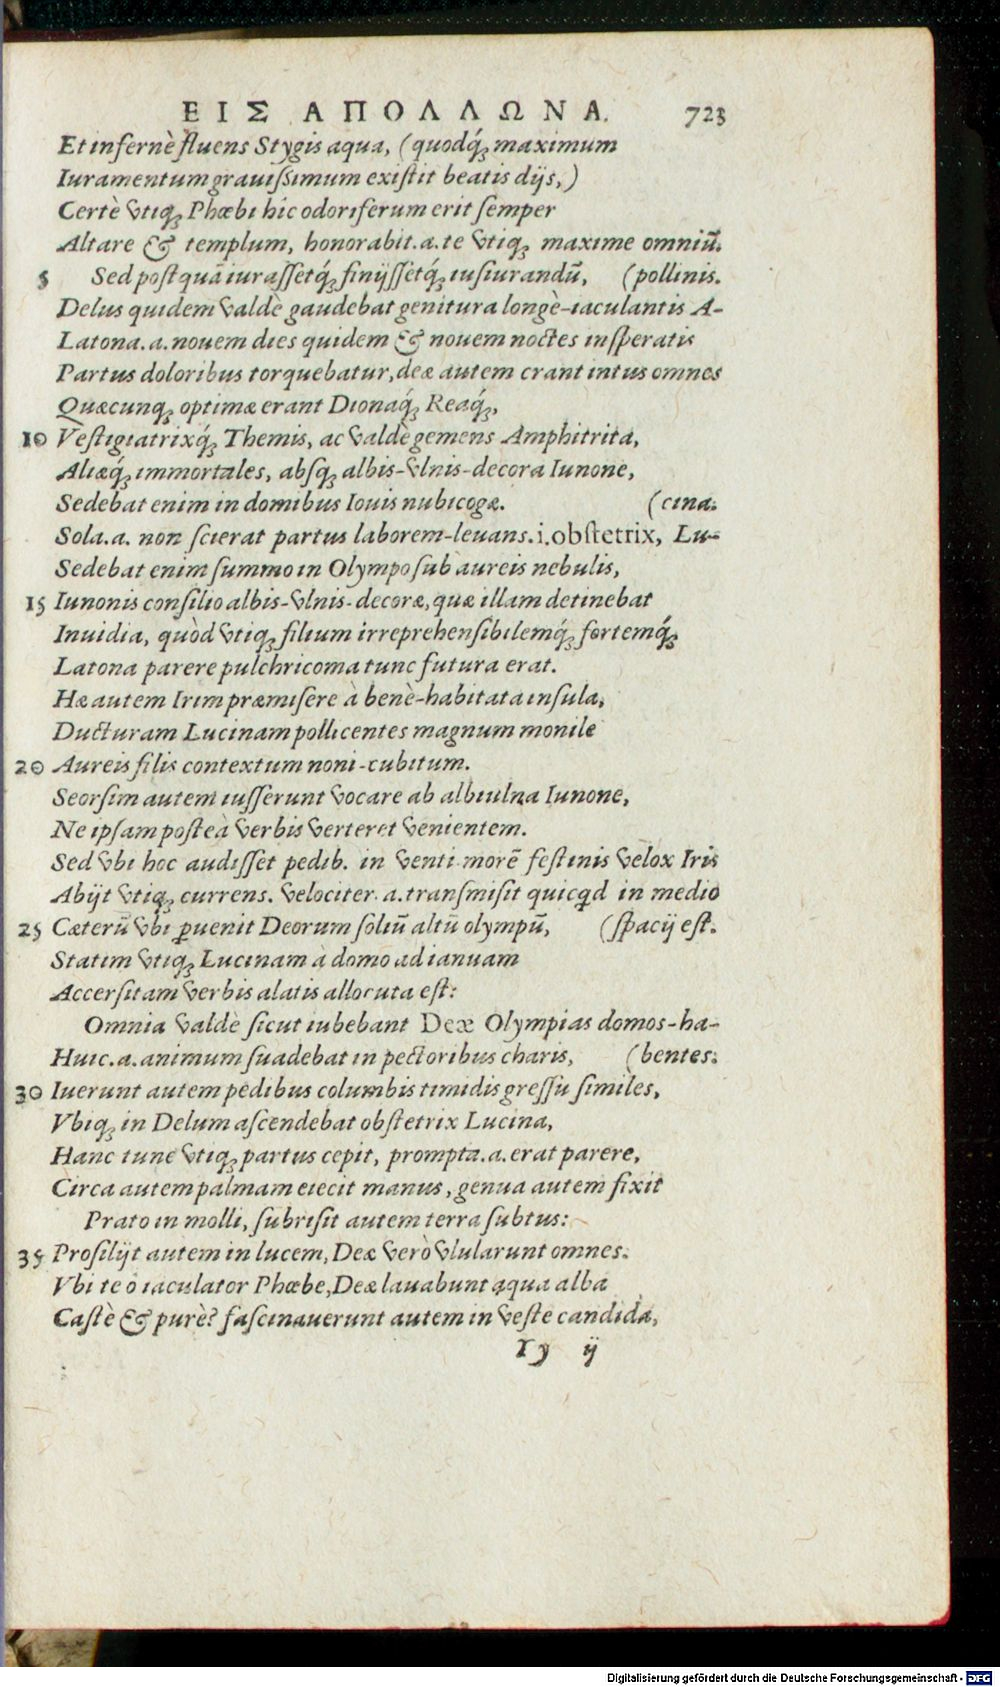 ΕΙΣ ΑΠΟΛΛΩΝΑ. 723
Et infernè fluens Stygis aqua, (quodq́; maximum
Iuramentum grauißimum existit beatis dijs,)
Certè vtiq; Phœbi hic odoriferum erit semper
Altare & templum, honorabit.a.te vtiq; maxime omniũ.
5 Sed postquã iurassetq́; finijssetq́; iusiurandũ, (pollinis.
Delus quidem valdè gaudebat genitura longè-iaculantis A-
Latona.a.nouem dies quidem & nouem noctes insperatis
Partus doloribus torquebatur, deæ autem erant intus omnes
Quæcunq; optimæ erant Dionaq́; Reaq́;,
10 Vestigiatrixq́; Themis, ac valdè gemens Amphitrita,
Aliæq́; immortales, absq; albis-vlnis-decora Iunone,
Sedebat enim in domibus Iouis nubicogæ. (cina.
Sola.a. non scierat partus laborem-leuans.i.obstetrix, Lu-
Sedebat enim summo in Olympo sub aureis nebulis,
15 Iunonis consilio albis-vlnis-decoræ, quæ illam detinebat
Inuidia, quòd vtiq; filium irreprehensibilemq́; fortemq́;
Latona parere pulchricoma tunc futura erat.
Hæ autem Irim præmisere à benè-habitata insula,
Ducturam Lucinam pollicentes magnum monile
20 Aureis filis contextum noni-cubitum.
Seorsim autem iusserunt vocare ab albiulna Iunone,
Ne ipsam posteà verbis verteret venientem.
Sed vbi hoc audisset pedib. in venti morẽ festinis velox Iris
Abijt vtiq; currens. velociter.a.transmisit quicqd in medio
25 Cæterũ vbi ꝑuenit Deorum soliũ altũ olympũ, (spacij est.
Statim vtiq; Lucinam à domo ad ianuam
Accersitam verbis alatis allocuta est:
Omnia valdè sicut iubebant Deæ Olympias domos-ha-
Huic.a.animum suadebat in pectoribus charis, (bentes.
30 Iuerunt autem pedibus columbis timidis gressu similes,
Vbiq; in Delum ascendebat obstetrix Lucina,
Hanc tunc vtiq; partus cepit, prompta.a.erat parere,
Circa autem palmam eiecit manus, genua autem fixit
Prato in molli, subrisit autem terra subtus:
35 Prosilijt autem in lucem, Deæ verò vlularunt omnes.
Vbi te ô iaculator Phœbe, Deæ lauabunt aqua alba
Castè & purè? fascinauerunt autem in veste candida,
ij